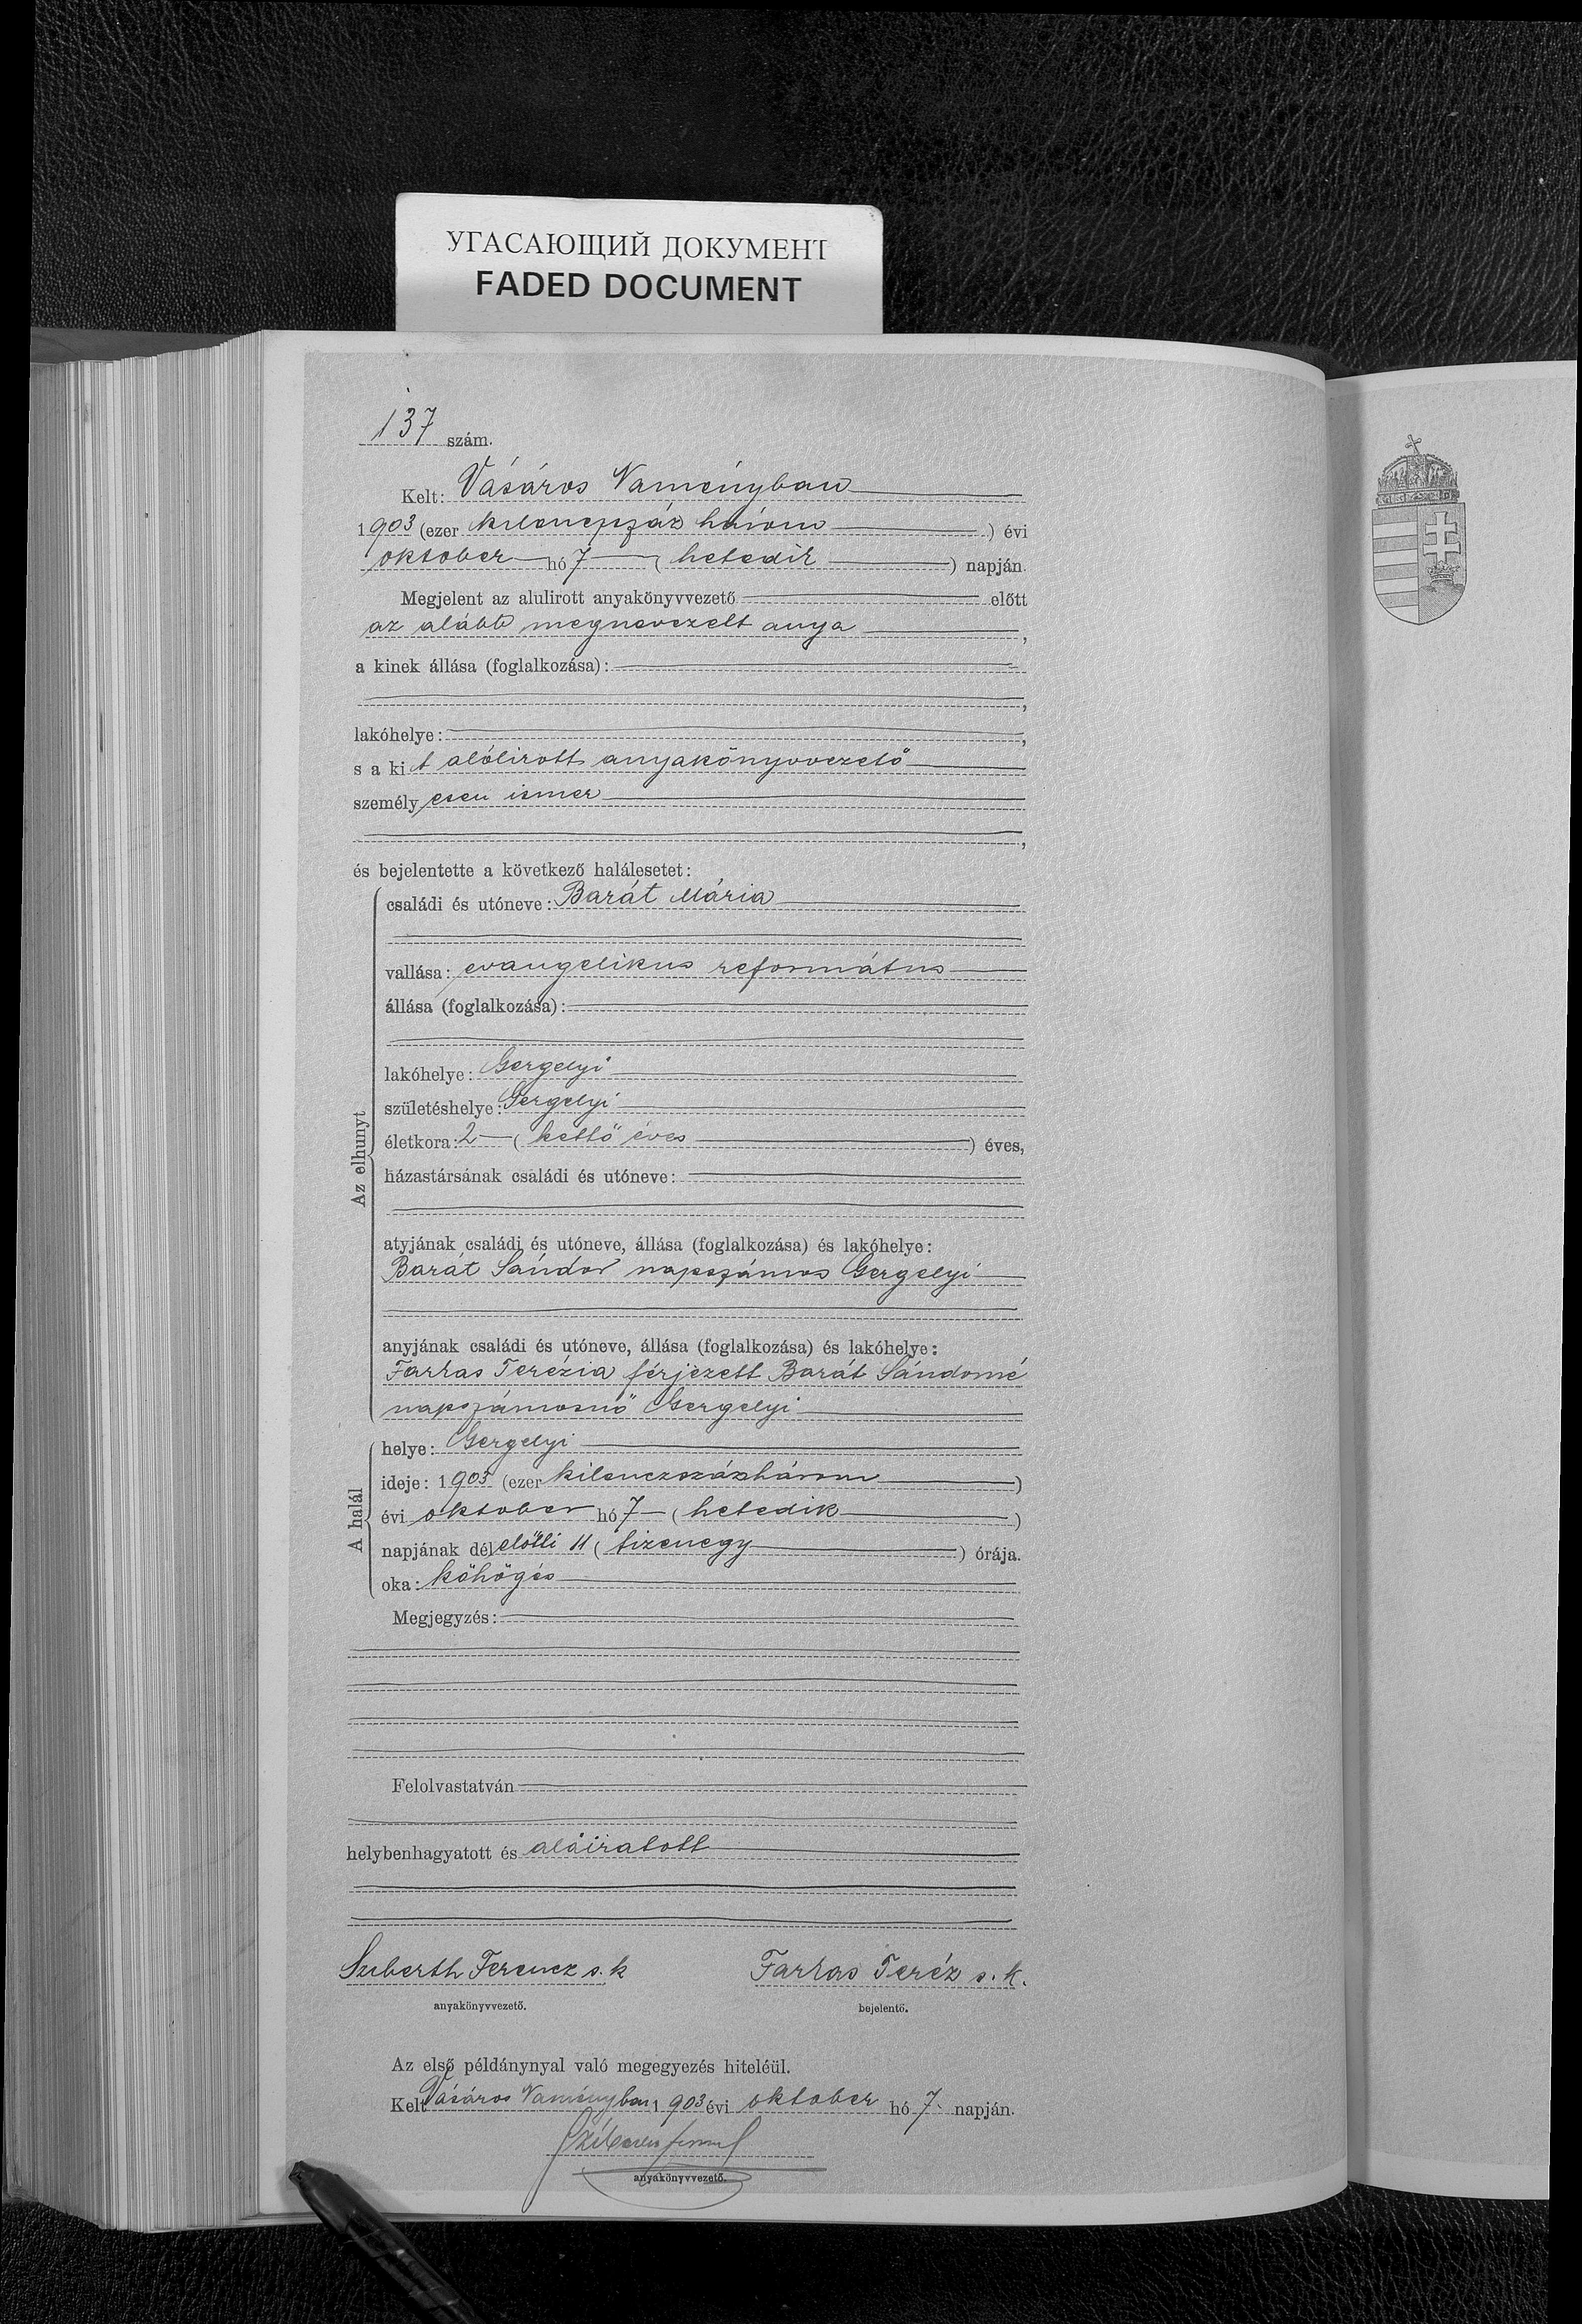 УГАСАЮЩИЙ ДОКУМЕНТ
FADED DOCUMENT
137 szám.
Kelt: Vásáros Naményban
1903 (ezer kilenczszáz három ) évi
oktober hó 7 ( hetedik ) napján.
Megjelent az alulirott anyakönyvvezető előtt
az alább megnevezett anya ,
a kinek állása (foglalkozása):
,
lakóhelye: ,
s a kit alólirott anyakönyvvezető
személyesen ismer
,
és bejelentette a következő halálesetet:
Az elhunyt
családi és utóneve: Barát Mária
vallása: evangelikus református
állása (foglalkozása):
lakóhelye: Gergelyi
születéshelye: Gergelyi
életkora: 2 ( kettő éves ) éves,
házastársának családi és utóneve:
atyjának családi és utóneve, állása (foglalkozása) és lakóhelye:
Barát Sándor napszámos Gergelyi
anyjának családi és utóneve, állása (foglalkozása) és lakóhelye:
Farkas Terézia férjezett Barát Sándorné
napszámosnő Gergelyi
A halál
helye: Gergelyi
ideje: 1903 (ezer kilenczszázhárom )
évi oktober hó 7 ( hetedik )
napjának délelőtti 11 ( tizenegy ) órája.
oka: köhögés
Megjegyzés:
Felolvastatván
helybenhagyatott és aláiratott
Ferencz s. k Farkas Teréz s. k.
anyakönyvvezető. bejelentő.
Az első példánynyal való megegyezés hiteléül.
Kelt Vásáros Naményban 1903 évi oktober hó 7. napján.
anyakönyvvezető.